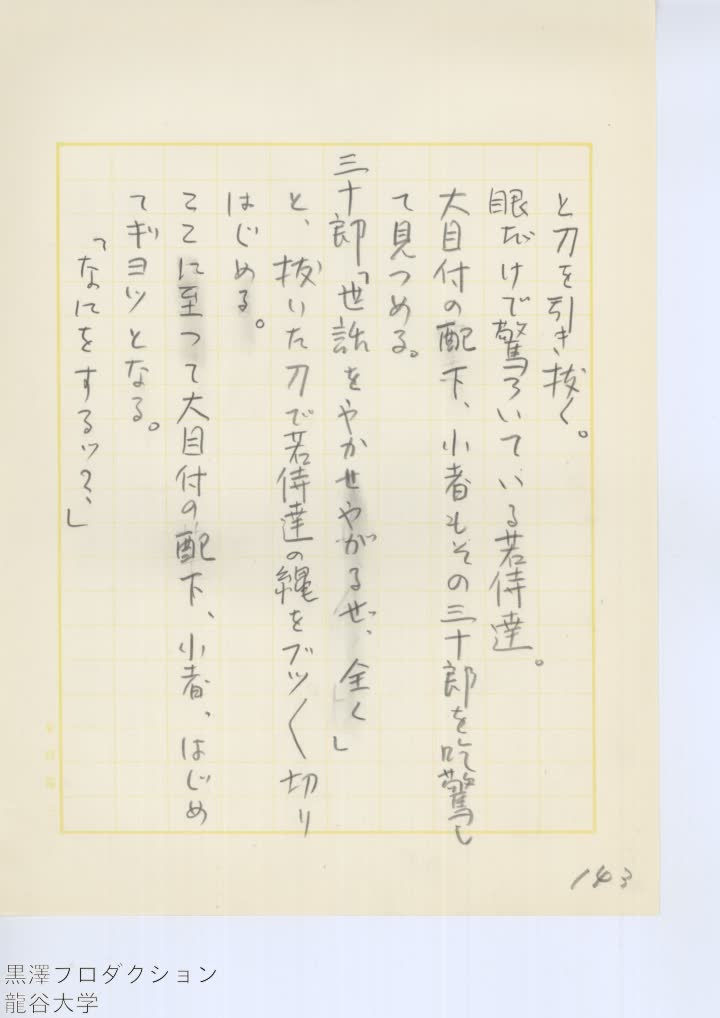 と刀を引き抜く。
眼だけで驚ろいている若侍達。
大目付の配下、小者もその三十郎を吃驚し
て見つめる。
三十郎「世話をやかせやがるぜ、全く」
と、抜いた刀で若侍達の縄をブツ〱切り
はじめる。
ここに至つて大目付の配下、小者、はじめ
てギヨツとなる。
「なにをするッ?、」
143
黒澤プロダクション
龍谷大学